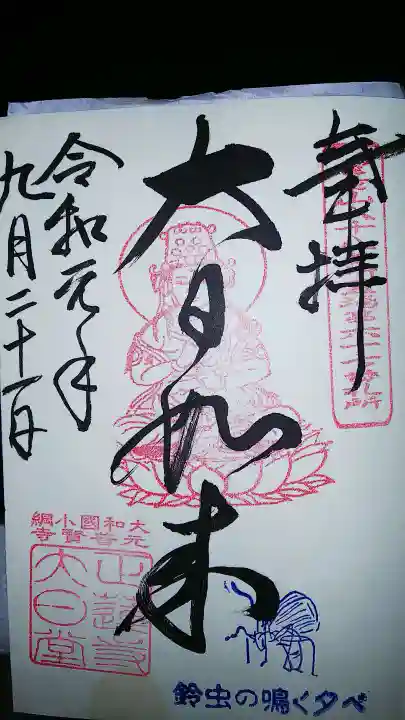 奉拝
大日如来
令和元年
九月二十一日
大和國小綱
元普賢寺
大日堂
鈴虫の鳴く夕べ